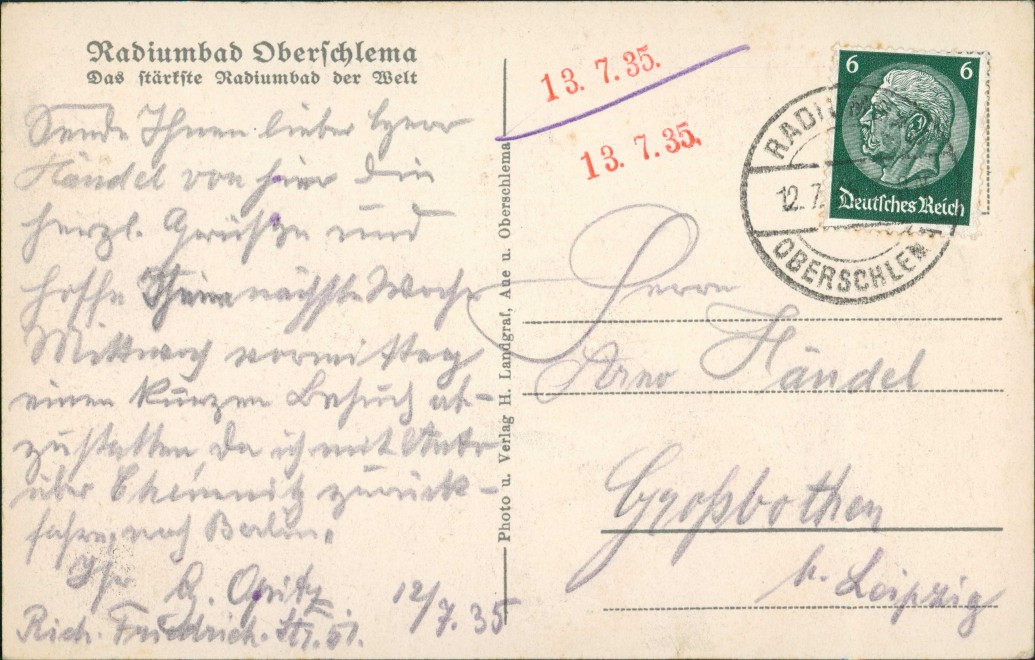 Radiumbad Oberschlema
Das stärkste Radiumbad der Welt
Sende Ihnen lieber Herr
Händel von hier die
herzl. Grüße und
hoffe Ihnen nächste Woche
Mittwoch vormittag
einen kurzen Besuch ab-
zustatten, da ich mit Auto
über Chemnitz zurück-
fahre, nach Berlin.
Ihr R. Opitz
12/7. 35
Rich. Friedrich. Str. 51.
Photo u. Verlag H. Landgraf, Aue u. Oberschlema
13. 7. 35.
13. 7. 35.
RADIU
12. 7
OBERSCHLEM
6 6
Deutsches Reich
Herrn
Arno Händel
Großbothen
b. Leipzig